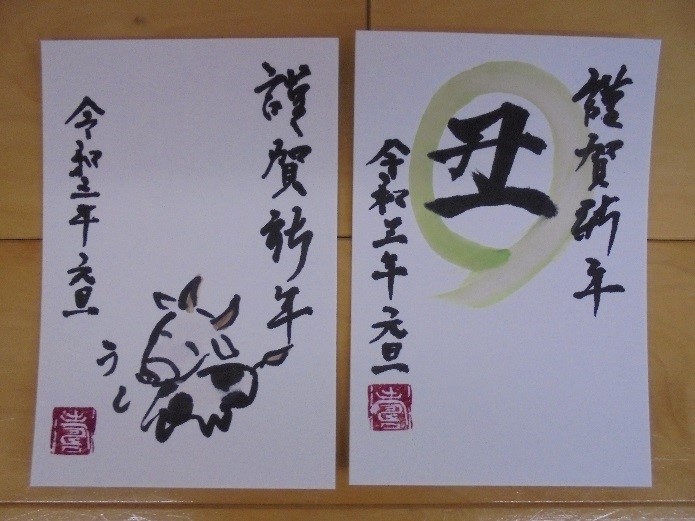 謹賀新年
令和三年 元旦
うし
謹賀新年
丑
令和三年 元旦